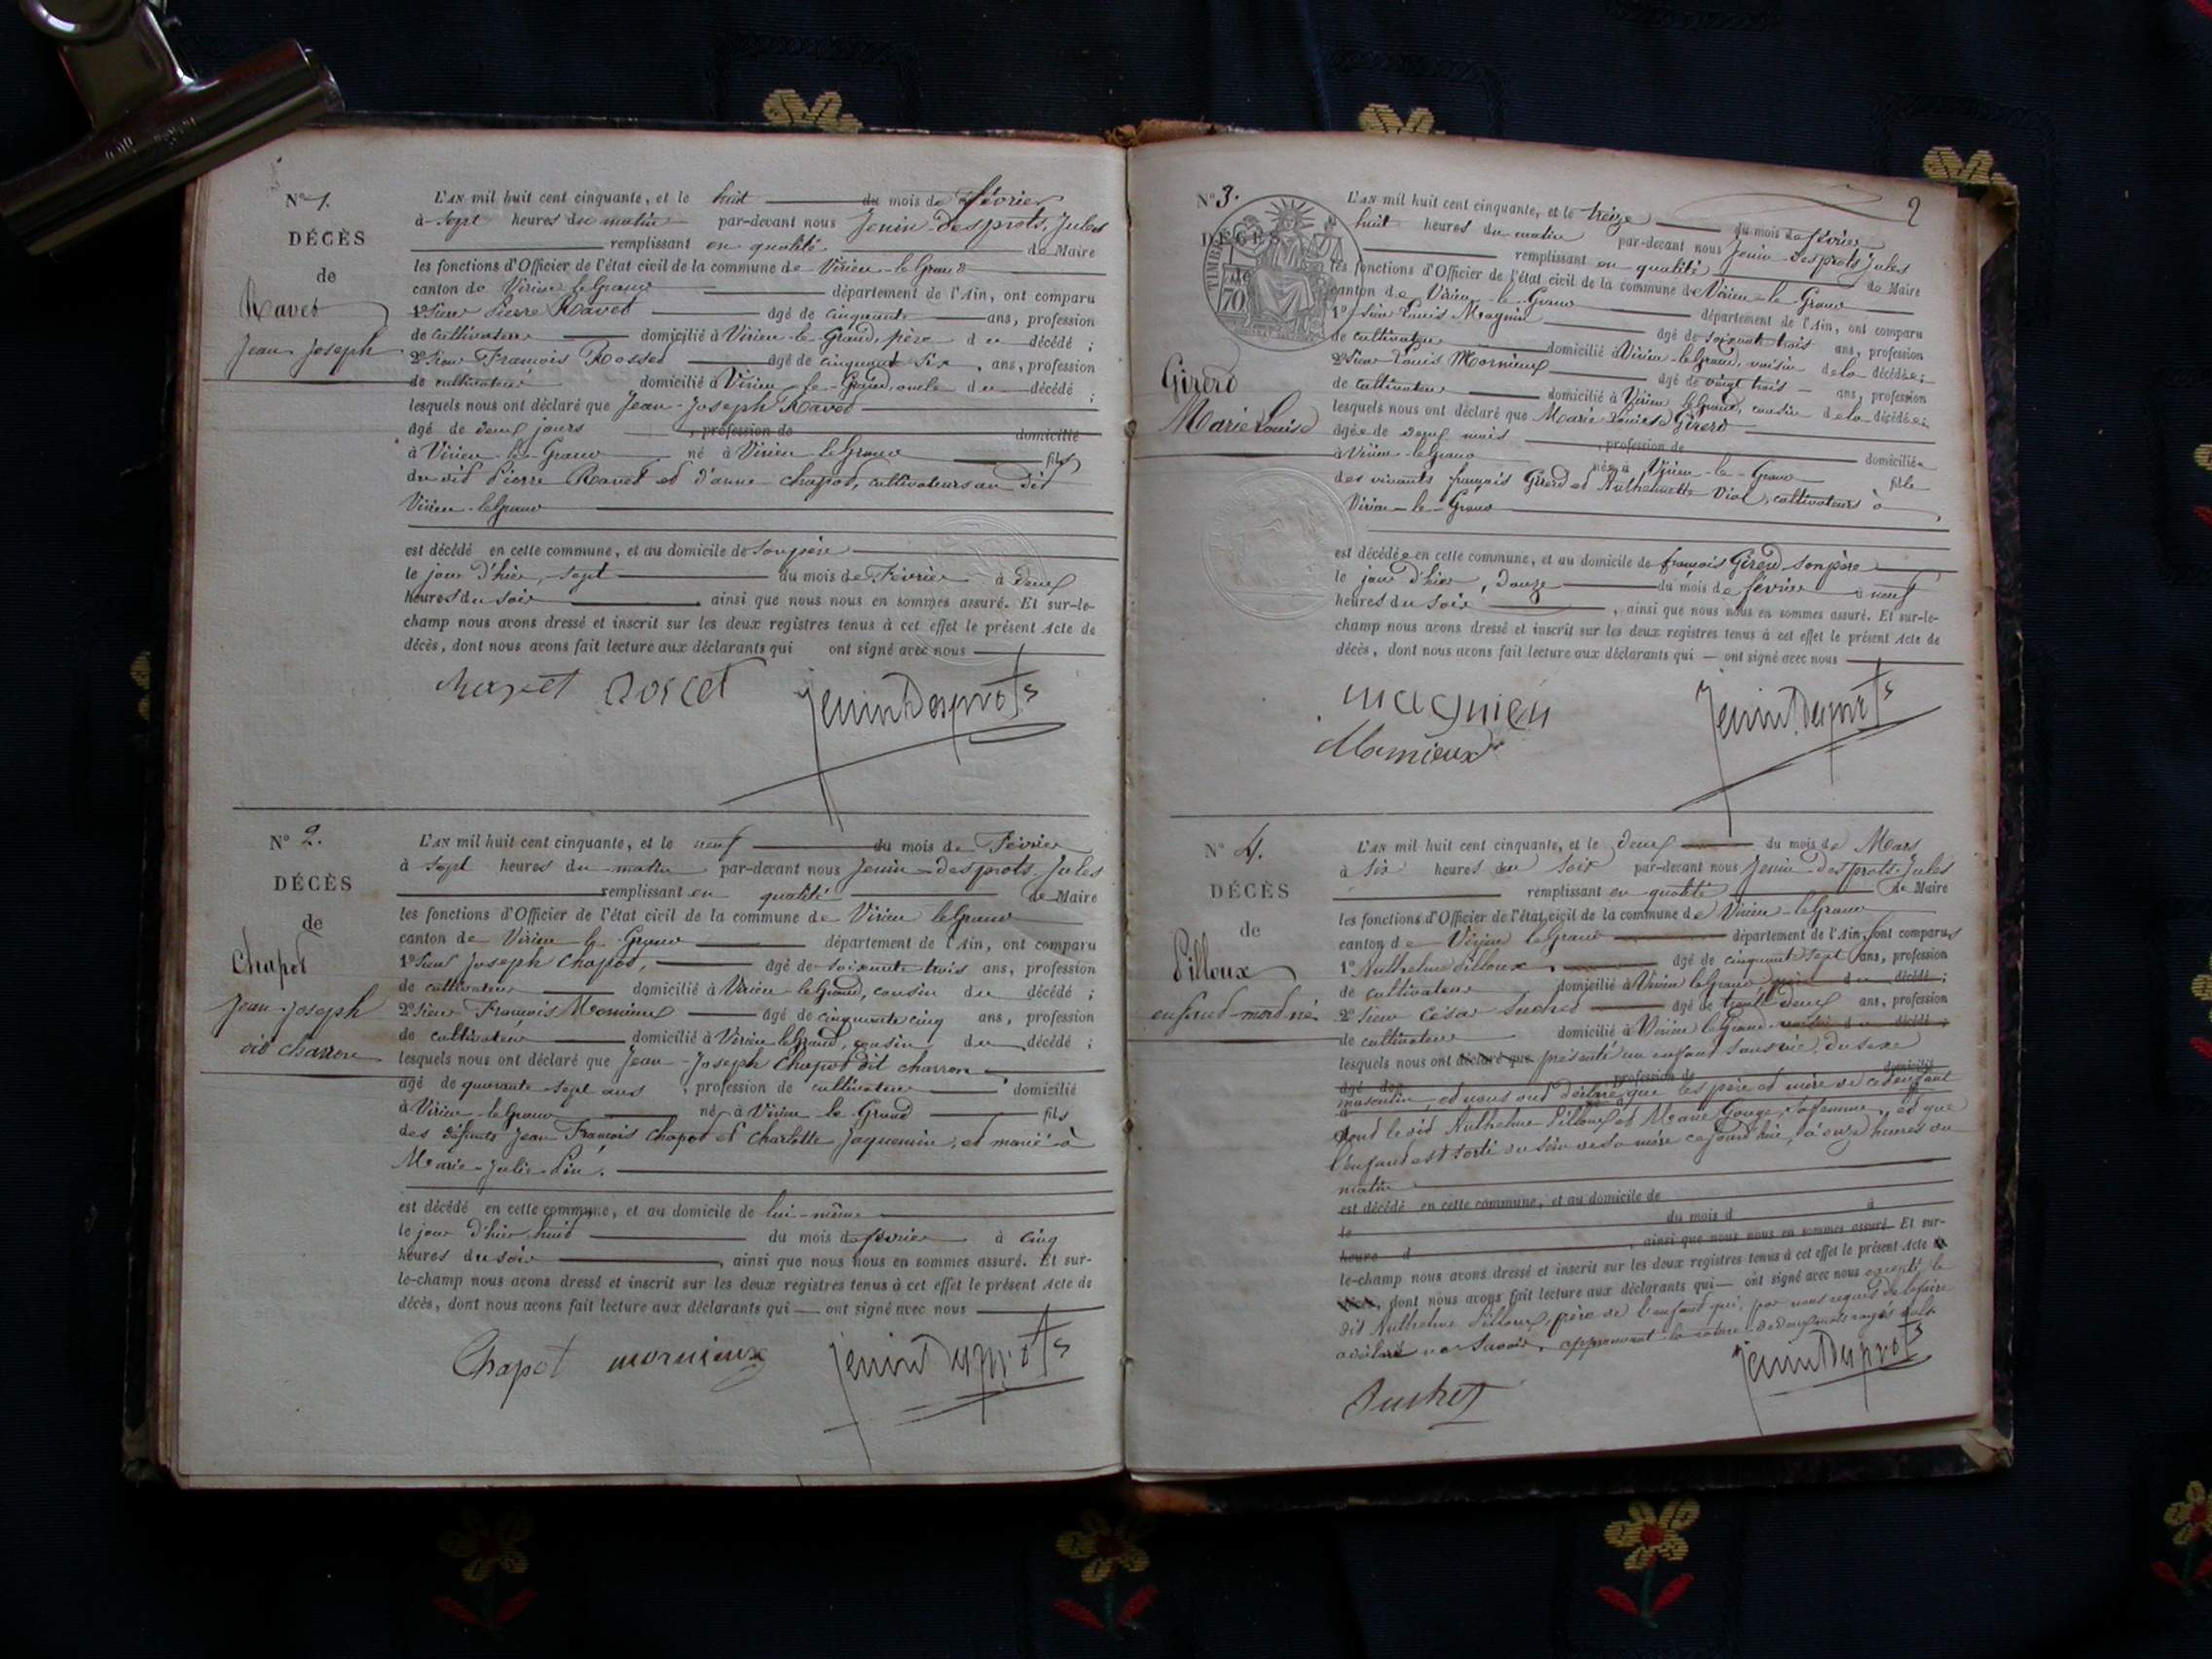 N° 1.
DÉCÈS
de
Ravet
Jean-Joseph
L'AN mil huit cent cinquante, et le huit du mois de février
à sept heures du matin par-devant nous Jenin-Desprots, Jules
remplissant en qualité de Maire
les fonctions d'Officier de l'état civil de la commune de Virieu-le-Grand
canton de Virieu-le-Grand département de l'Ain, ont comparu
1° Sieur Pierre Ravet agé de cinquante ans, profession
de cultivateur domicilié à Virieu-le-Grand, père du décédé ;
2° Sieur François Rosset agé de cinquante six ans, profession
de cultivateur domicilié à Virieu-le-Grand, oncle du décédé ;
lesquels nous ont déclaré que Jean-Joseph Ravet
âgé de deux jours, profession de domicilié
à Virieu-le-Grand né à Virieu-le-Grand fils
du dit Pierre Ravet et d'anne Chapot, cultivateurs au dit
Virieu-le-Grand
est décédé en cette commune, et au domicile de son père
le jour d'hier, sept du mois de Février à deux
heures du soir, ainsi que nous nous en sommes assuré. Et sur-le-
champ nous avons dressé et inscrit sur les deux registres tenus à cet effet le présent Acte de
décès, dont nous avons fait lecture aux déclarants qui ont signé avec nous
Rosset JeninDesprots
N° 2.
DÉCÈS
de
Chapot
Jean-Joseph
dit charron
L'AN mil huit cent cinquante, et le neuf du mois de Février
à sept heures du matin par-devant nous Jenin-Desprots, Jules
remplissant en qualité de Maire
les fonctions d'Officier de l'état civil de la commune de Virieu-le-Grand
canton de Virieu-le-Grand département de l'Ain, ont comparu
1° Sieur Joseph Chapot, agé de soixante trois ans, profession
de cultivateur domicilié à Virieu-le-Grand, cousin du décédé ;
2° Sieur François Mornieux agé de cinquante cinq ans, profession
de cultivateur domicilié à Virieu-le-Grand, cousin du décédé ;
lesquels nous ont déclaré que Jean-Joseph Chapot dit charron
âgé de quarante-sept ans, profession de cultivateur domicilié
à Virieu-le-Grand né à Virieu-le-Grand fils
des défunts Jean François Chapot et Charlotte Jaquemin, et marié à
Marie-Julie
est décédé en cette commune, et au domicile de lui-même
le jour d'hier, huit du mois de février à cinq
heures du soir, ainsi que nous nous en sommes assuré. Et sur-
le-champ nous avons dressé et inscrit sur les deux registres tenus à cet effet le présent Acte de
décès, dont nous avons fait lecture aux déclarants qui ont signé avec nous
Chapot mornieux JeninDesprots
2
N° 3.
DÉCÈS
TIMBRE
70
Girerd
Marie Louise
L'AN mil huit cent cinquante, et le treize du mois de février
huit heures du matin par-devant nous Jenin-Desprots Jules
remplissant en qualité de Maire
les fonctions d'Officier de l'état civil de la commune de Virieu-le-Grand
canton de Virieu-le-Grand département de l'Ain, ont comparu
1° Sieur Louis Magnin agé de soixante trois ans, profession
de cultivateur domicilié à Virieu-le-Grand, voisin de la décédée ;
2° Sieur Louis Mornieux agé de vingt trois ans, profession
de cultivateur domicilié à Virieu-le-Grand, cousin de la décédée ;
lesquels nous ont déclaré que Marie Louise Girerd
âgée de deux mois, profession de domiciliée
à Virieu-le-Grand née à Virieu-le-Grand fille
des vivants françois Girerd et Anthelmette Viol, cultivateurs à
Virieu-le-Grand
est décédée en cette commune, et au domicile de françois Girerd, son père
le jour d'hier, douze du mois de février à neuf
heures du soir, ainsi que nous nous en sommes assuré. Et sur-le-
champ nous avons dressé et inscrit sur les deux registres tenus à cet effet le présent Acte de
décès, dont nous avons fait lecture aux déclarants qui ont signé avec nous
magnien JeninDesprots
Mornieux
N° 4.
DÉCÈS
de
Pilloux
enfant-mort-né
L'AN mil huit cent cinquante, et le deux du mois de Mars
à six heures du soir par-devant nous Jenin-Desprots, Jules
remplissant en qualité de Maire
les fonctions d'Officier de l'état civil de la commune de Virieu-le-Grand
canton de Virieu-le-Grand département de l'Ain, sont comparus
1° Anthelme Pilloux, agé de cinquante sept ans, profession
de cultivateur domicilié à Virieu-le-Grand, père du décédé ;
2° Sieur César Suchet agé de trente deux ans, profession
de cultivateur domicilié à Virieu-le-Grand, voisin du décédé ;
lesquels nous ont déclaré que présenté un enfant sans vie, du sexe
âgé de profession de domicilié
masculin, et nous ont déclaré que les père et mère de cet enfant
sont le dit Anthelme Pilloux et Marie Gouge, sa femme, et que
l'enfant est sorti du sein de sa mère ce jourd'hui, à onze heures du
matin
est décédé en cette commune, et au domicile de
le du mois d à
heure d, ainsi que nous nous en sommes assuré. Et sur-
le-champ nous avons dressé et inscrit sur les deux registres tenus à cet effet le présent Acte de
décès, dont nous avons fait lecture aux déclarants qui ont signé avec nous excepté le
dit Anthelme Pilloux, père de l'enfant qui, par nous requis de le faire
a déclaré ne savoir, approuvant la rature de deux mots rayés nuls.
Suchet JeninDesprots